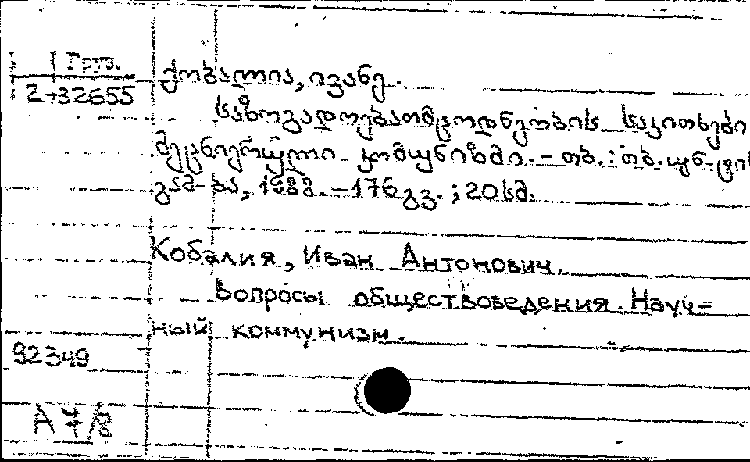 Груз.
2-32655
ქობალია, ივანე.
საზოგადოებათმცოდნეობის საკითხები
მეცნიერული კომუნიზმი. - თბ. : თბ. უნ-ტის
გამ-ბა, 1988. - 176 გვ. ; 20 სმ.
Кобалия, Иван Антонович.
Вопросы обществоведения. Науч=
ный коммунизм.
92349
А 7/8